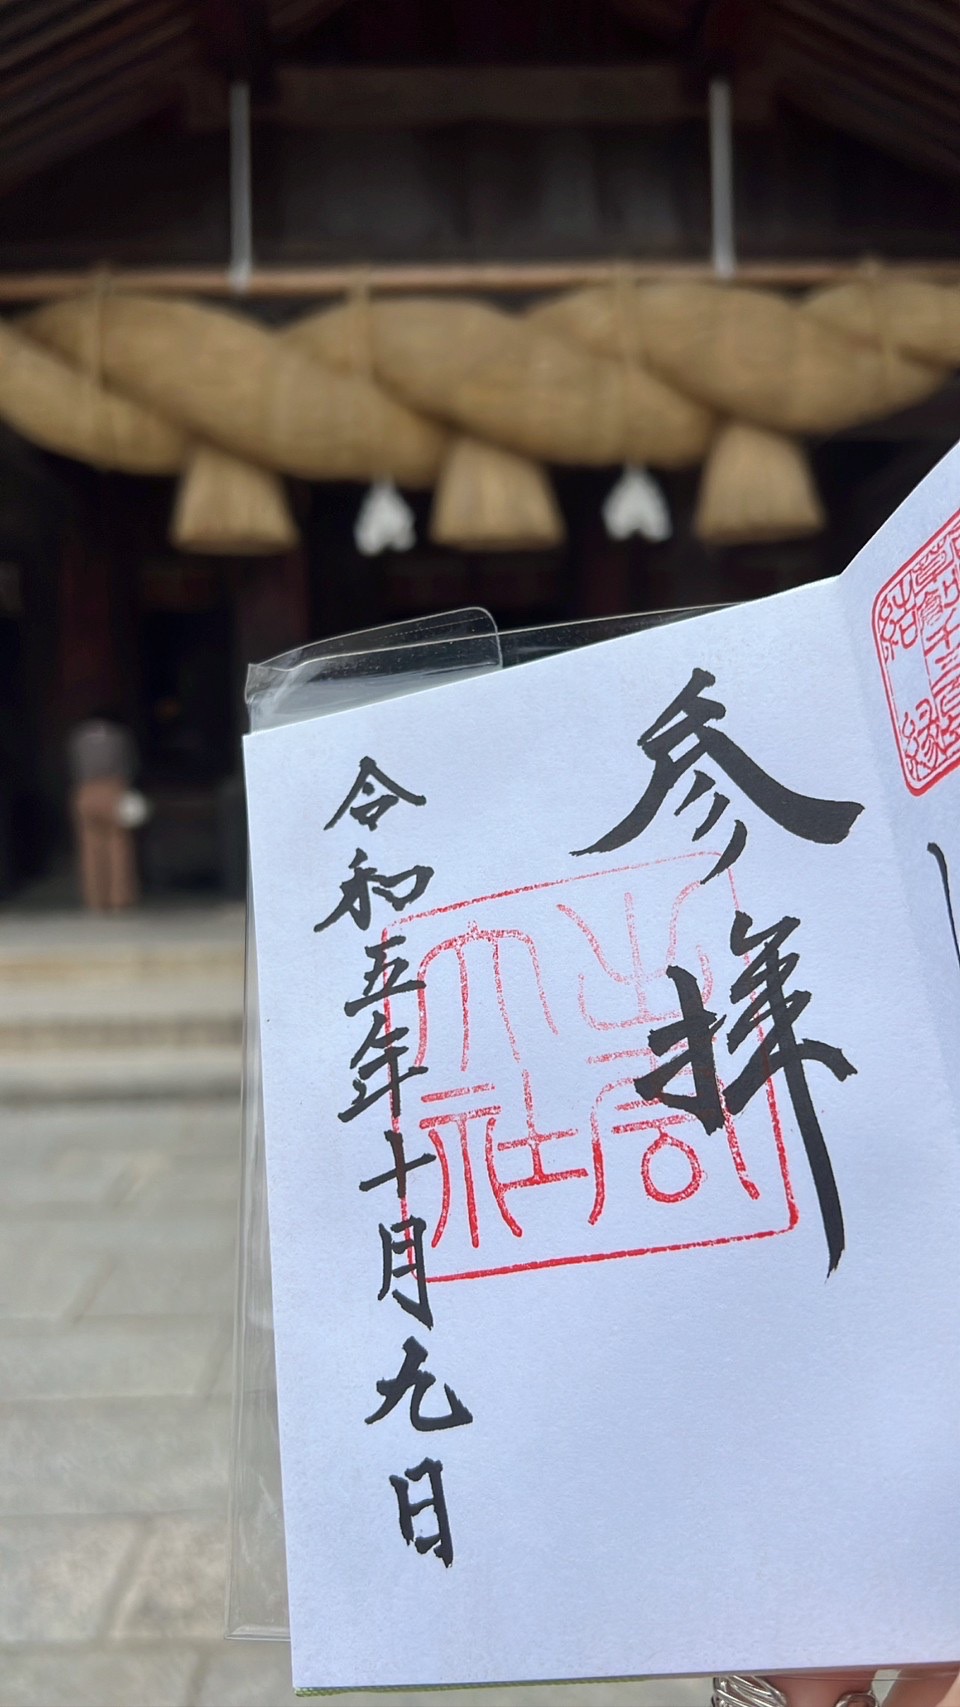 参拝
出雲大社
令和五年十月九日
結縁